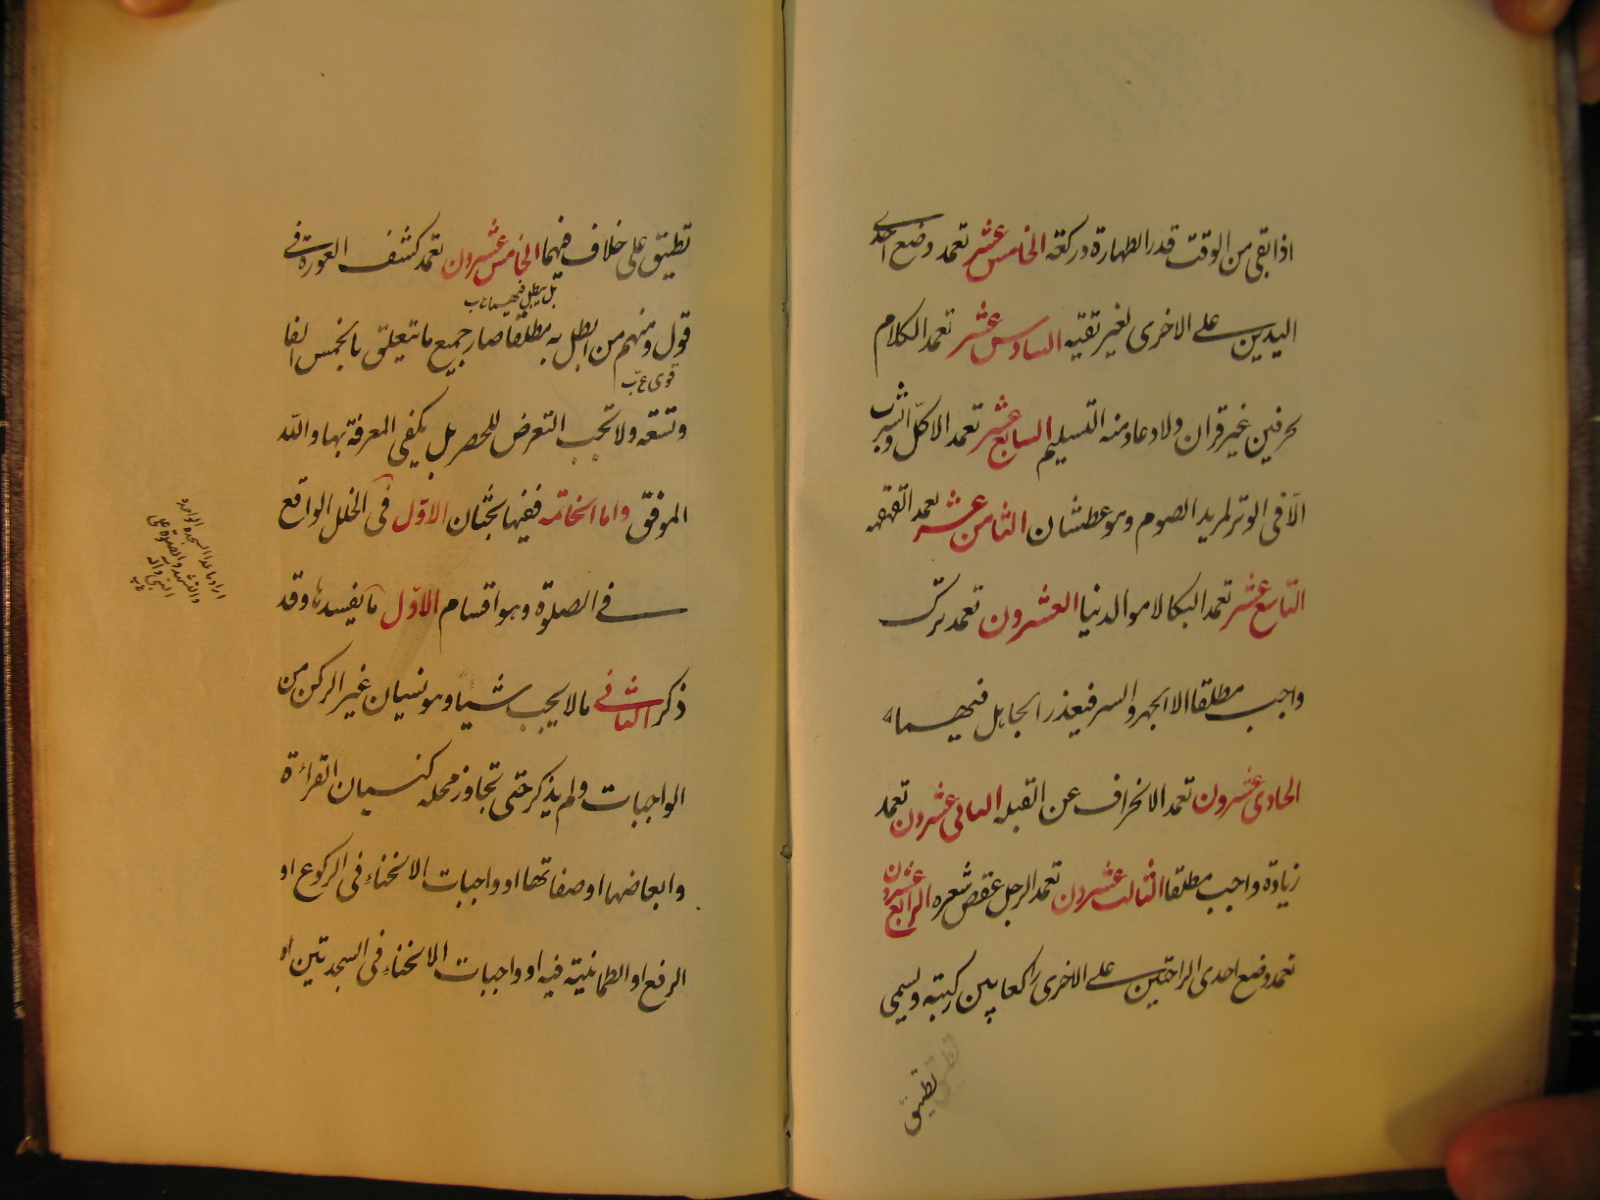 اذا بقى من الوقت قدر الطهارة و ركعة الخامس عشر تعمد وضع احدى
اليدين على الاخرى لغير تقيه السادس عشر تعمد الكلام
بحرفين غير قران ولا دعاء ومنه التسليم السابع عشر تعمد الاكل والشرب
الّا فى الوتر لمريد الصوم وهو عطشان الثامن عشر تعمد القهقهه
التاسع عشر تعمد البكا لامور الدنيا العشرون تعمد ترك
واجب مطلقا الا الجهر والسر فيعذر الجاهل فيهما
الحادى عشرون تعمد الانحراف عن القبله الثانى عشرون تعمد
زيادة واجب مطلقا الثالث عشرون تعمد الرجل عقص شعره الرابع عشرون
تعمد وضع احدى الراحتين على الاخرى راكعا بين ركبتيه ويسمى
تطبيق
تطبيق على خلاف فيهما الخامس عشرون تعمد كشف العورة فى
بل يبطل فيهما
قول ومنهم من ابطل به مطلقا صار جميع ما يتعلق بالخمس الفا
قوى
وتسعة ولا تجب التعرض للحصر بل يكفى المعرفة بها والله
الموفق واما الخاتمه ففيها بحثان الاوّل فى الخلل الواقع
فى الصلوة وهو اقسام الاوّل ما يفسدها وقد
ذكر الثانى ما لا يجب شيأ وهو نسيان غير الركن من
الواجبات ولم يذكر حتى تجاوز محله كنسيان القراءة
وابعاضها او صفاتها او واجبات الانحناء فى الركوع او
الرفع او الطمانينة فيه او واجبات الانحناء فى السجدتين او
اراد ما عدا السجدة الواحدة
والتشهد والصلوة على
النبى واله